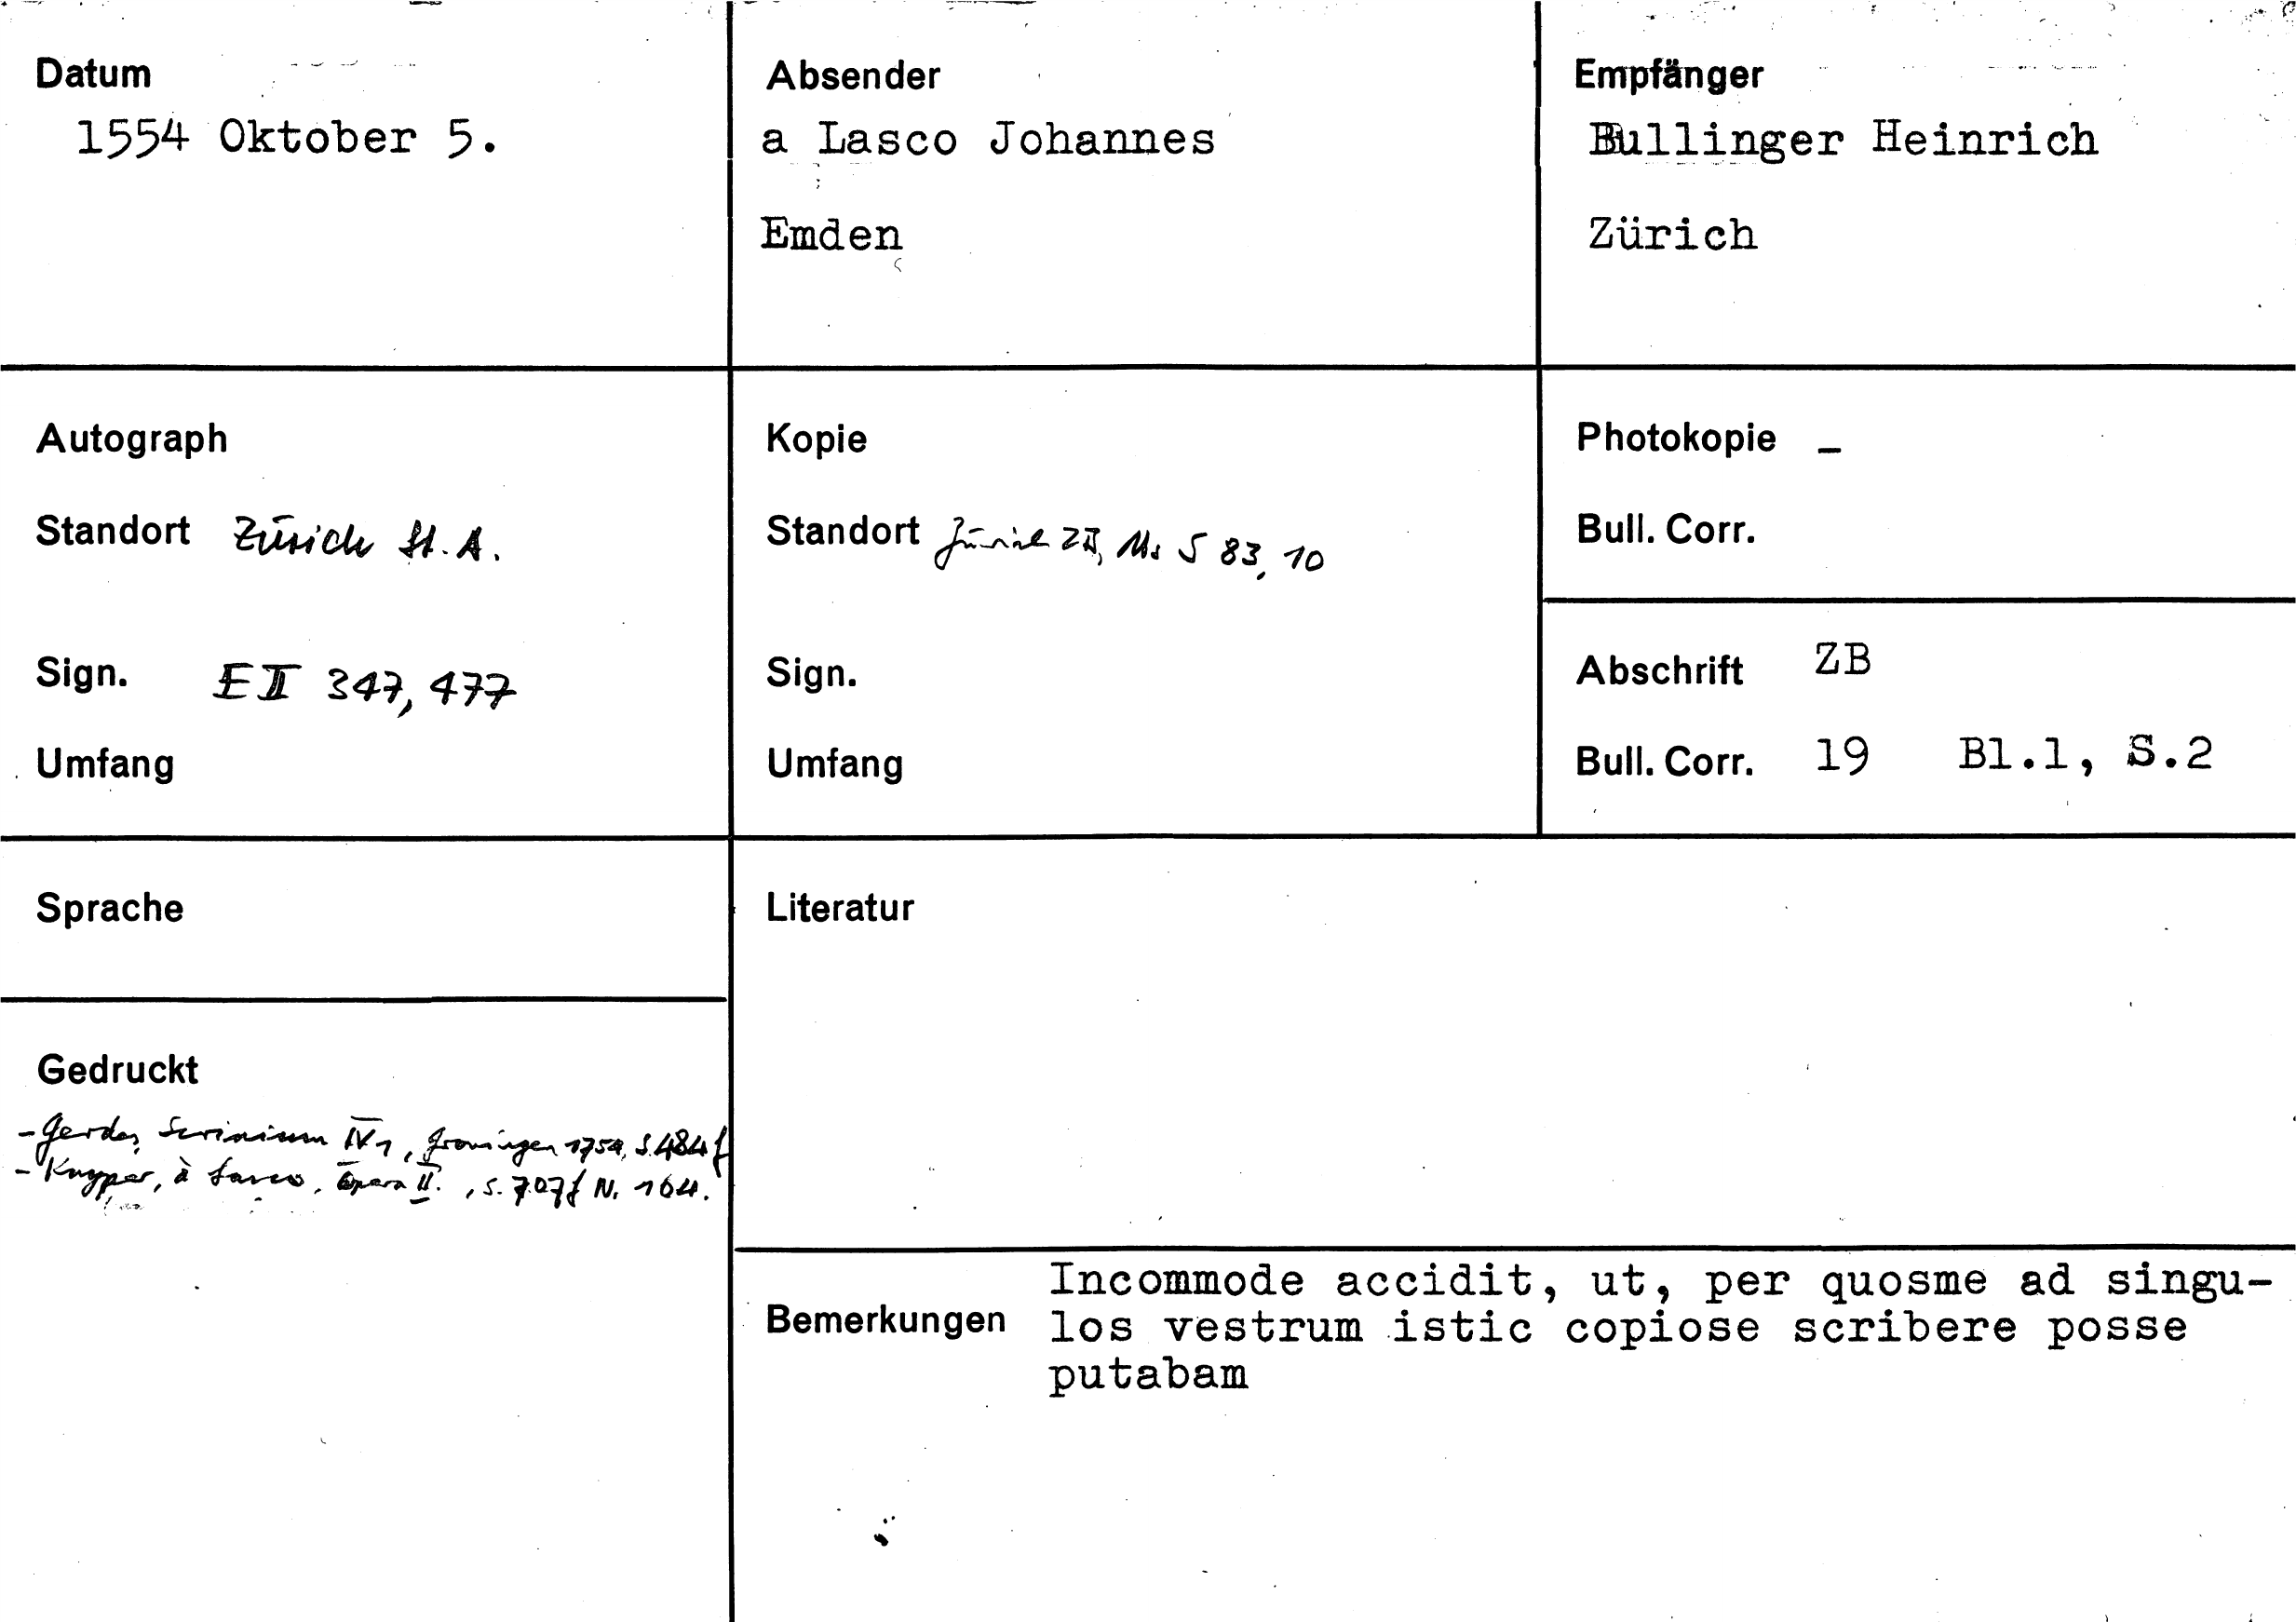 Datum
1554 Oktober 5.
Absender
a Lasco Johannes
Emden
Empfänger
Bullinger Heinrich
Zürich
Autograph
Standort Zürich St. A.
Sign. E II 347, 477
Umfang
Kopie
Standort Zürich ZB, Ms S 83, 10
Sign.
Umfang
Photokopie –
Bull. Corr.
Abschrift ZB
Bull. Corr. 19 Bl.1, S.2
Sprache
Gedruckt
- Gerdes, Scrinium IV 1, Groningen 1754, S. 484 f
- Kuyper, à Lasco, Opera II., S. 707 f N. 164.
Literatur
Bemerkungen
Incommode accidit, ut, per quosme ad singu-
los vestrum istic copiose scribere posse
putabam